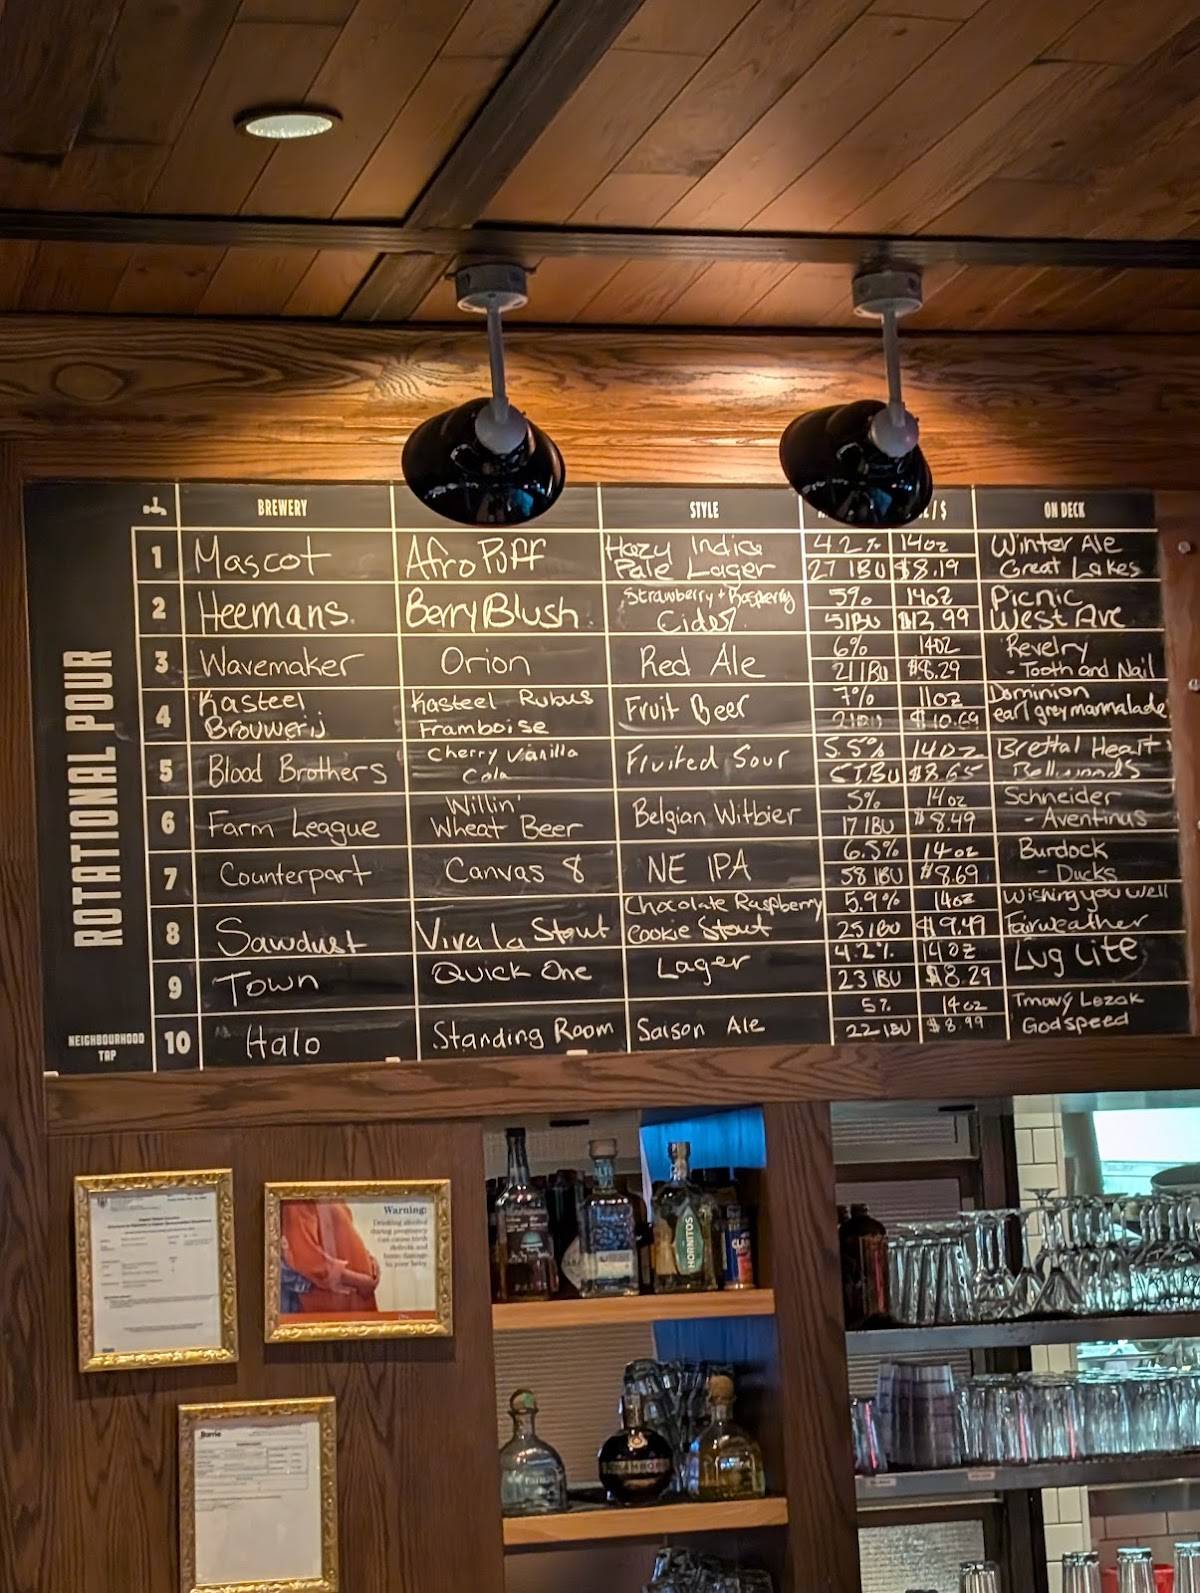 BREWERY
STYLE
/ $
ON DECK
ROTATIONAL POUR
NEIGHBOURHOOD
TAP
1
Mascot
Afro Puff
Hazy India
Pale Lager
4.2%
14oz
27 IBU
$8.19
Winter Ale
Great Lakes
2
Heemans
BerryBlush
Strawberry + Raspberry
Cider
5%
14oz
5IBU
Picnic
West Ave
3
Wavemaker
Orion
Red Ale
6%
14oz
21 IBU
$8.29
Revelry
- Tooth and Nail
4
Kasteel
Brouwerij
Kasteel Rubus
Framboise
Fruit Beer
7%
11oz
$10.69
Dominion
earl grey marmalade
5
Blood Brothers
Cherry Vanilla
Cola
Fruited Sour
5.5%
14oz
5IBU
$8.65
Brettal Heart
Bellwoods
6
Farm League
Willin'
Wheat Beer
Belgian Witbier
5%
14oz
17 IBU
$8.49
Schneider
- Aventinus
7
Counterpart
Canvas 8
NE IPA
6.5%
14oz
58 IBU
$8.69
Burdock
- Ducks
8
Sawdust
Viva la Stout
Chocolate Raspberry
Cookie Stout
5.9%
14oz
25 IBU
$9.49
Wishing you well
Fairweather
9
Town
Quick One
Lager
4.2%
14oz
23 IBU
$8.29
Lug Lite
10
Halo
Standing Room
Saison Ale
5%
14oz
22 IBU
$8.99
Tmavý Lezak
Godspeed
Warning:
Drinking alcohol
during pregnancy
can cause birth
defects and
brain damage
to your baby.
HORNITOS
Barrie